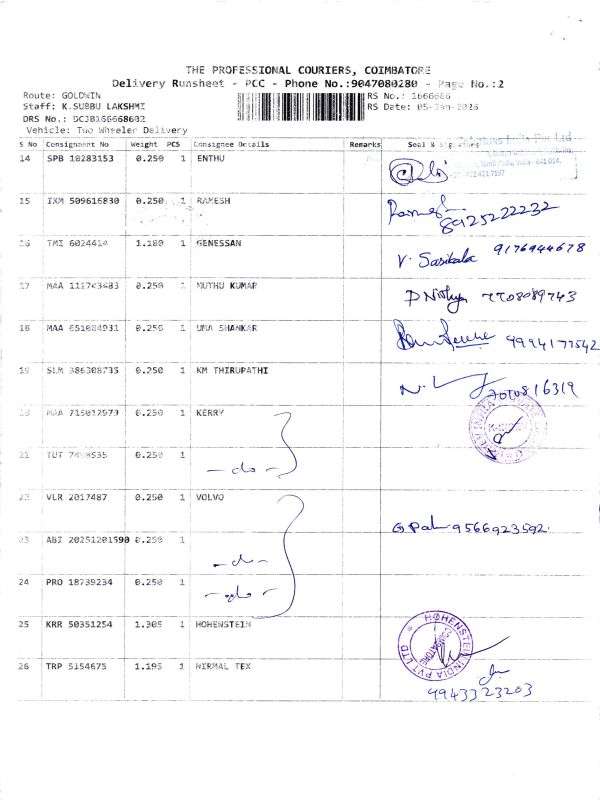 THE PROFESSIONAL COURIERS, COIMBATORE
Delivery Runsheet - PCC - Phone No.:9047080280 - Page No.:2
Route: GOLDWIN
RS No.: 1666686
Staff: K.SUBBU LAKSHMI
RS Date: 05-Jan-2026
DRS No.: DCJB166668602
Vehicle: Two Wheeler Delivery
S No Consignment No Weight PCS Consignee Details Remarks Seal &
14 SPB 10283153 0.250 1 ENTHU
15 IXM 509616830 0.250 1 RAMESH
8925222232
16 TMI 6024414 1.180 1 GENESSAN
V. Sasikala 9176944678
17 MAA 0.250 1 MUTHU KUMAR
7708089743
18 MAA 651084931 0.250 1 UMA SHANKAR
9994177542
19 SLM 386308735 0.250 1 KM THIRUPATHI
20 MAA 0.250 1 KERRY
21 TUT 0.250 1
- do -
22 VLR 2017487 0.250 1 VOLVO
9566923592
23 ABI 20251201590 0.250 1
- do -
24 PRO 18739234 0.250 1
- do -
25 KRR 50351254 1.305 1 HOHENSTEIN
HOHENSTEIN INDIA PVT LTD
26 TRP 5154675 1.195 1 NIRMAL TEX
9943323203